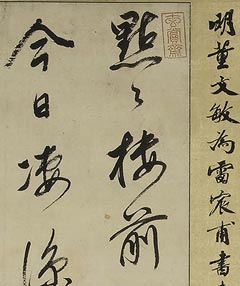 明董文敏為雷宸甫書
玄賞齋
點々樓前
今日凄涼